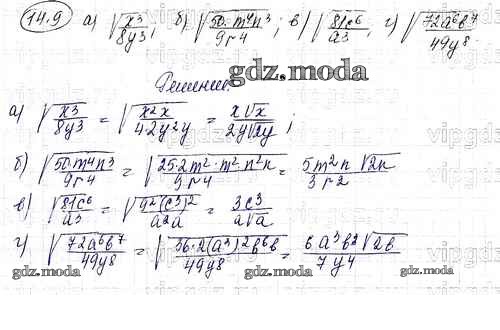 14.9 а) √x³/8y³; б) √50·m⁴n³/9r4; в) √81c⁶/a³; г) √72a⁶b⁷/49y⁸
Решение.
gdz.moda
а) √x³/8y³ = √x²x/42y²y = x√x/2y√2y;
б) √50·m⁴n³/9r4 = √25·2m²·m²·n²n/9r4 = 5m²n√2n/3r2
в) √81c⁶/a³ = √9²(c³)²/a²a = 9c³/a√a
г) √72a⁶b⁷/49y⁸ = √36·2(a³)²b⁶b/49y⁸ = 6a³b³√2b/7y4
gdz.moda gdz.moda gdz.moda